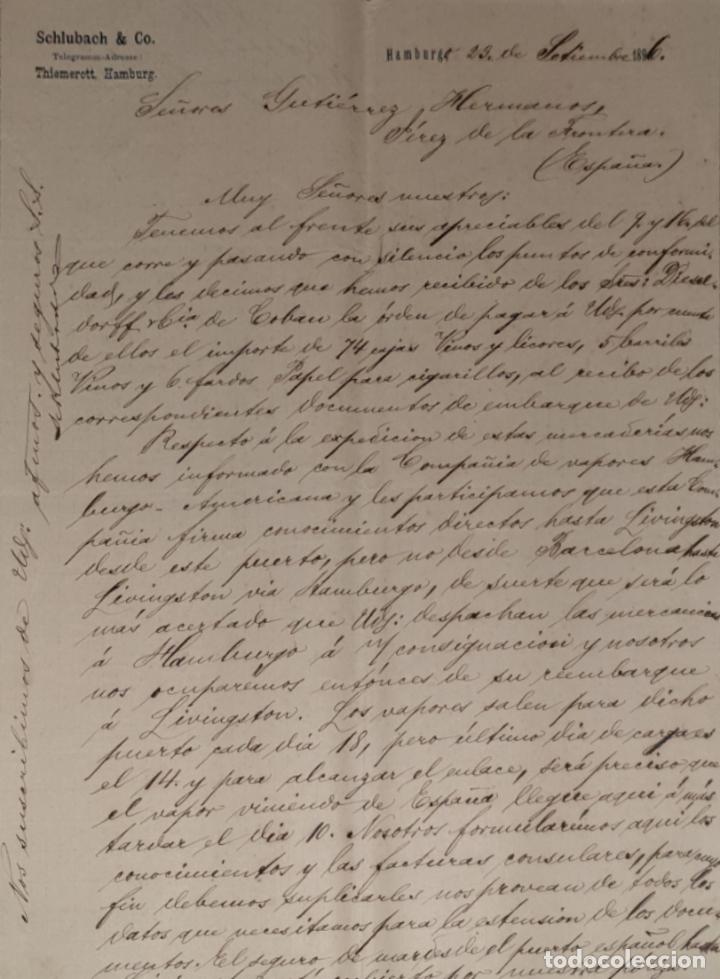 Schlubach & Co.
Telegramm-Adresse:
Thiemerott, Hamburg.
Hamburgo 23. de Setiembre 1896.
Señores Gutiérrez Hermanos,
Jérez de la Frontera.
(España.)
Muy Señores nuestros:
Tenemos al frente sus apreciables del 9. y 16. del
que corre y pasando con silencio los puntos de conformi-
dad, y les decimos que hemos recibido de los Sres: Diesel-
dorff & Cia. de Coban la órden de pagar á Uds: por cuenta
de ellos el importe de 74 cajas Vinos y licores, 5 barriles
Vinos y 6 fardos Papel para cigarillos, al recibo de los
correspondientes documentos de embarque de Uds:
Respecto á la expedicion de estas mercaderías nos
hemos informado con la Compañia de vapores Ham-
burgo-Americana y les participamos que esta Com-
pañia firma conocimientos directos hasta Livingston
desde este puerto, pero no desde Barcelona hasta
Livingston via Hamburgo, de suerte que será lo
más acertado que Uds: despachan las mercancias
á Hamburgo á n/ consignacion y nosotros
nos ocuparemos entónces de su reembarque
á Livingston. Los vapores salen para dicho
puerto cada dia 18, pero último dia de carga es
el 14. y para alcanzar el enlace, será preciso que
el vapor viniendo de España llegue aqui á más
tardar el dia 10. Nosotros formularémos aqui los
conocimientos y las facturas consulares, para cuyo
fin debemos suplicarles nos provean de todos los
datos que necesitamos para la estension de los docu-
mentos. El seguro de mar desde el puerto español hasta
cubierto por nuestro
Nos suscribimos de Uds: afmos. y seguros S.S.
todocoleccion
todocoleccion.net